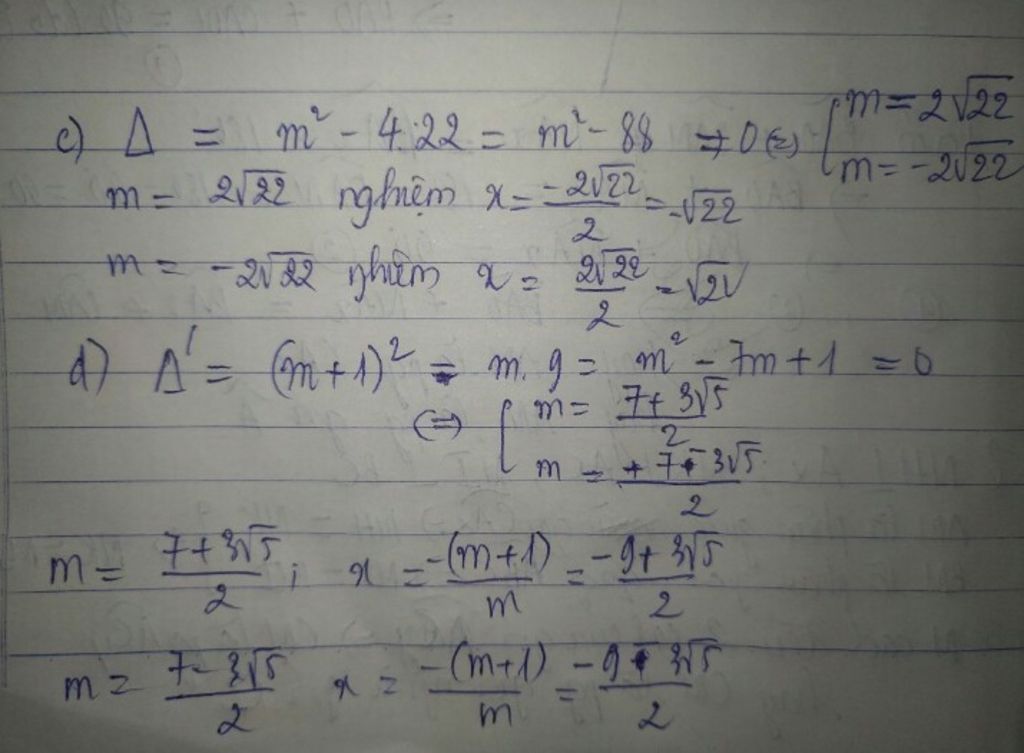 c) Δ = m² - 4.22 = m² - 88 = 0 (=) [ m = 2√22
m = -2√22
m = 2√22 nghiệm x = -2√22/2 = -√22
m = -2√22 nhiệm x = 2√22/2 = √2
d) Δ' = (m+1)² - m. 9 = m² - 7m + 1 = 0
(=) [ m = 7+3√5/2
m = +7-3√5/2
m = 7+3√5/2 ; x = -(m+1)/m = -9+3√5/2
m = 7-3√5/2 x = -(m+1)/m = -9-3√5/2